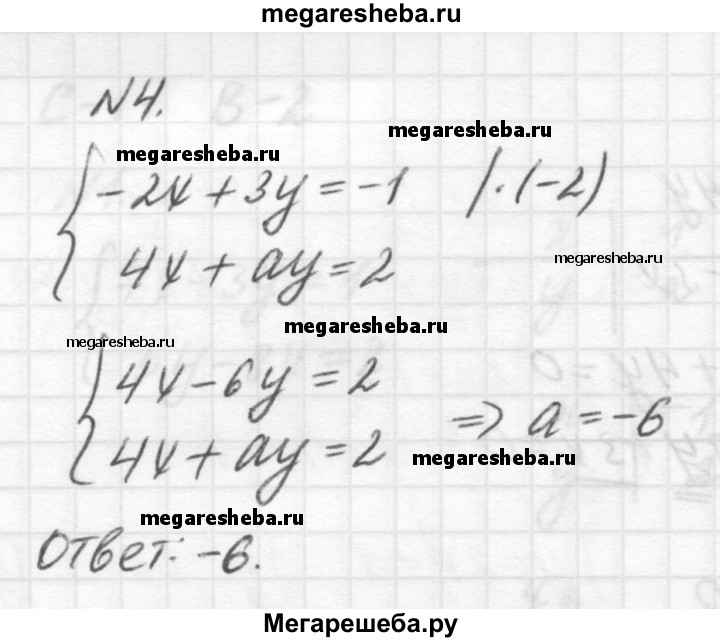 megaresheba.ru
N4.
megaresheba.ru
megaresheba.ru
{ -2x + 3y = -1 | · (-2)
4x + ay = 2
megaresheba.ru
megaresheba.ru
megaresheba.ru
{ 4x - 6y = 2
4x + ay = 2 => a = -6
megaresheba.ru
megaresheba.ru
Ответ: -6.
Мегарешеба.ру